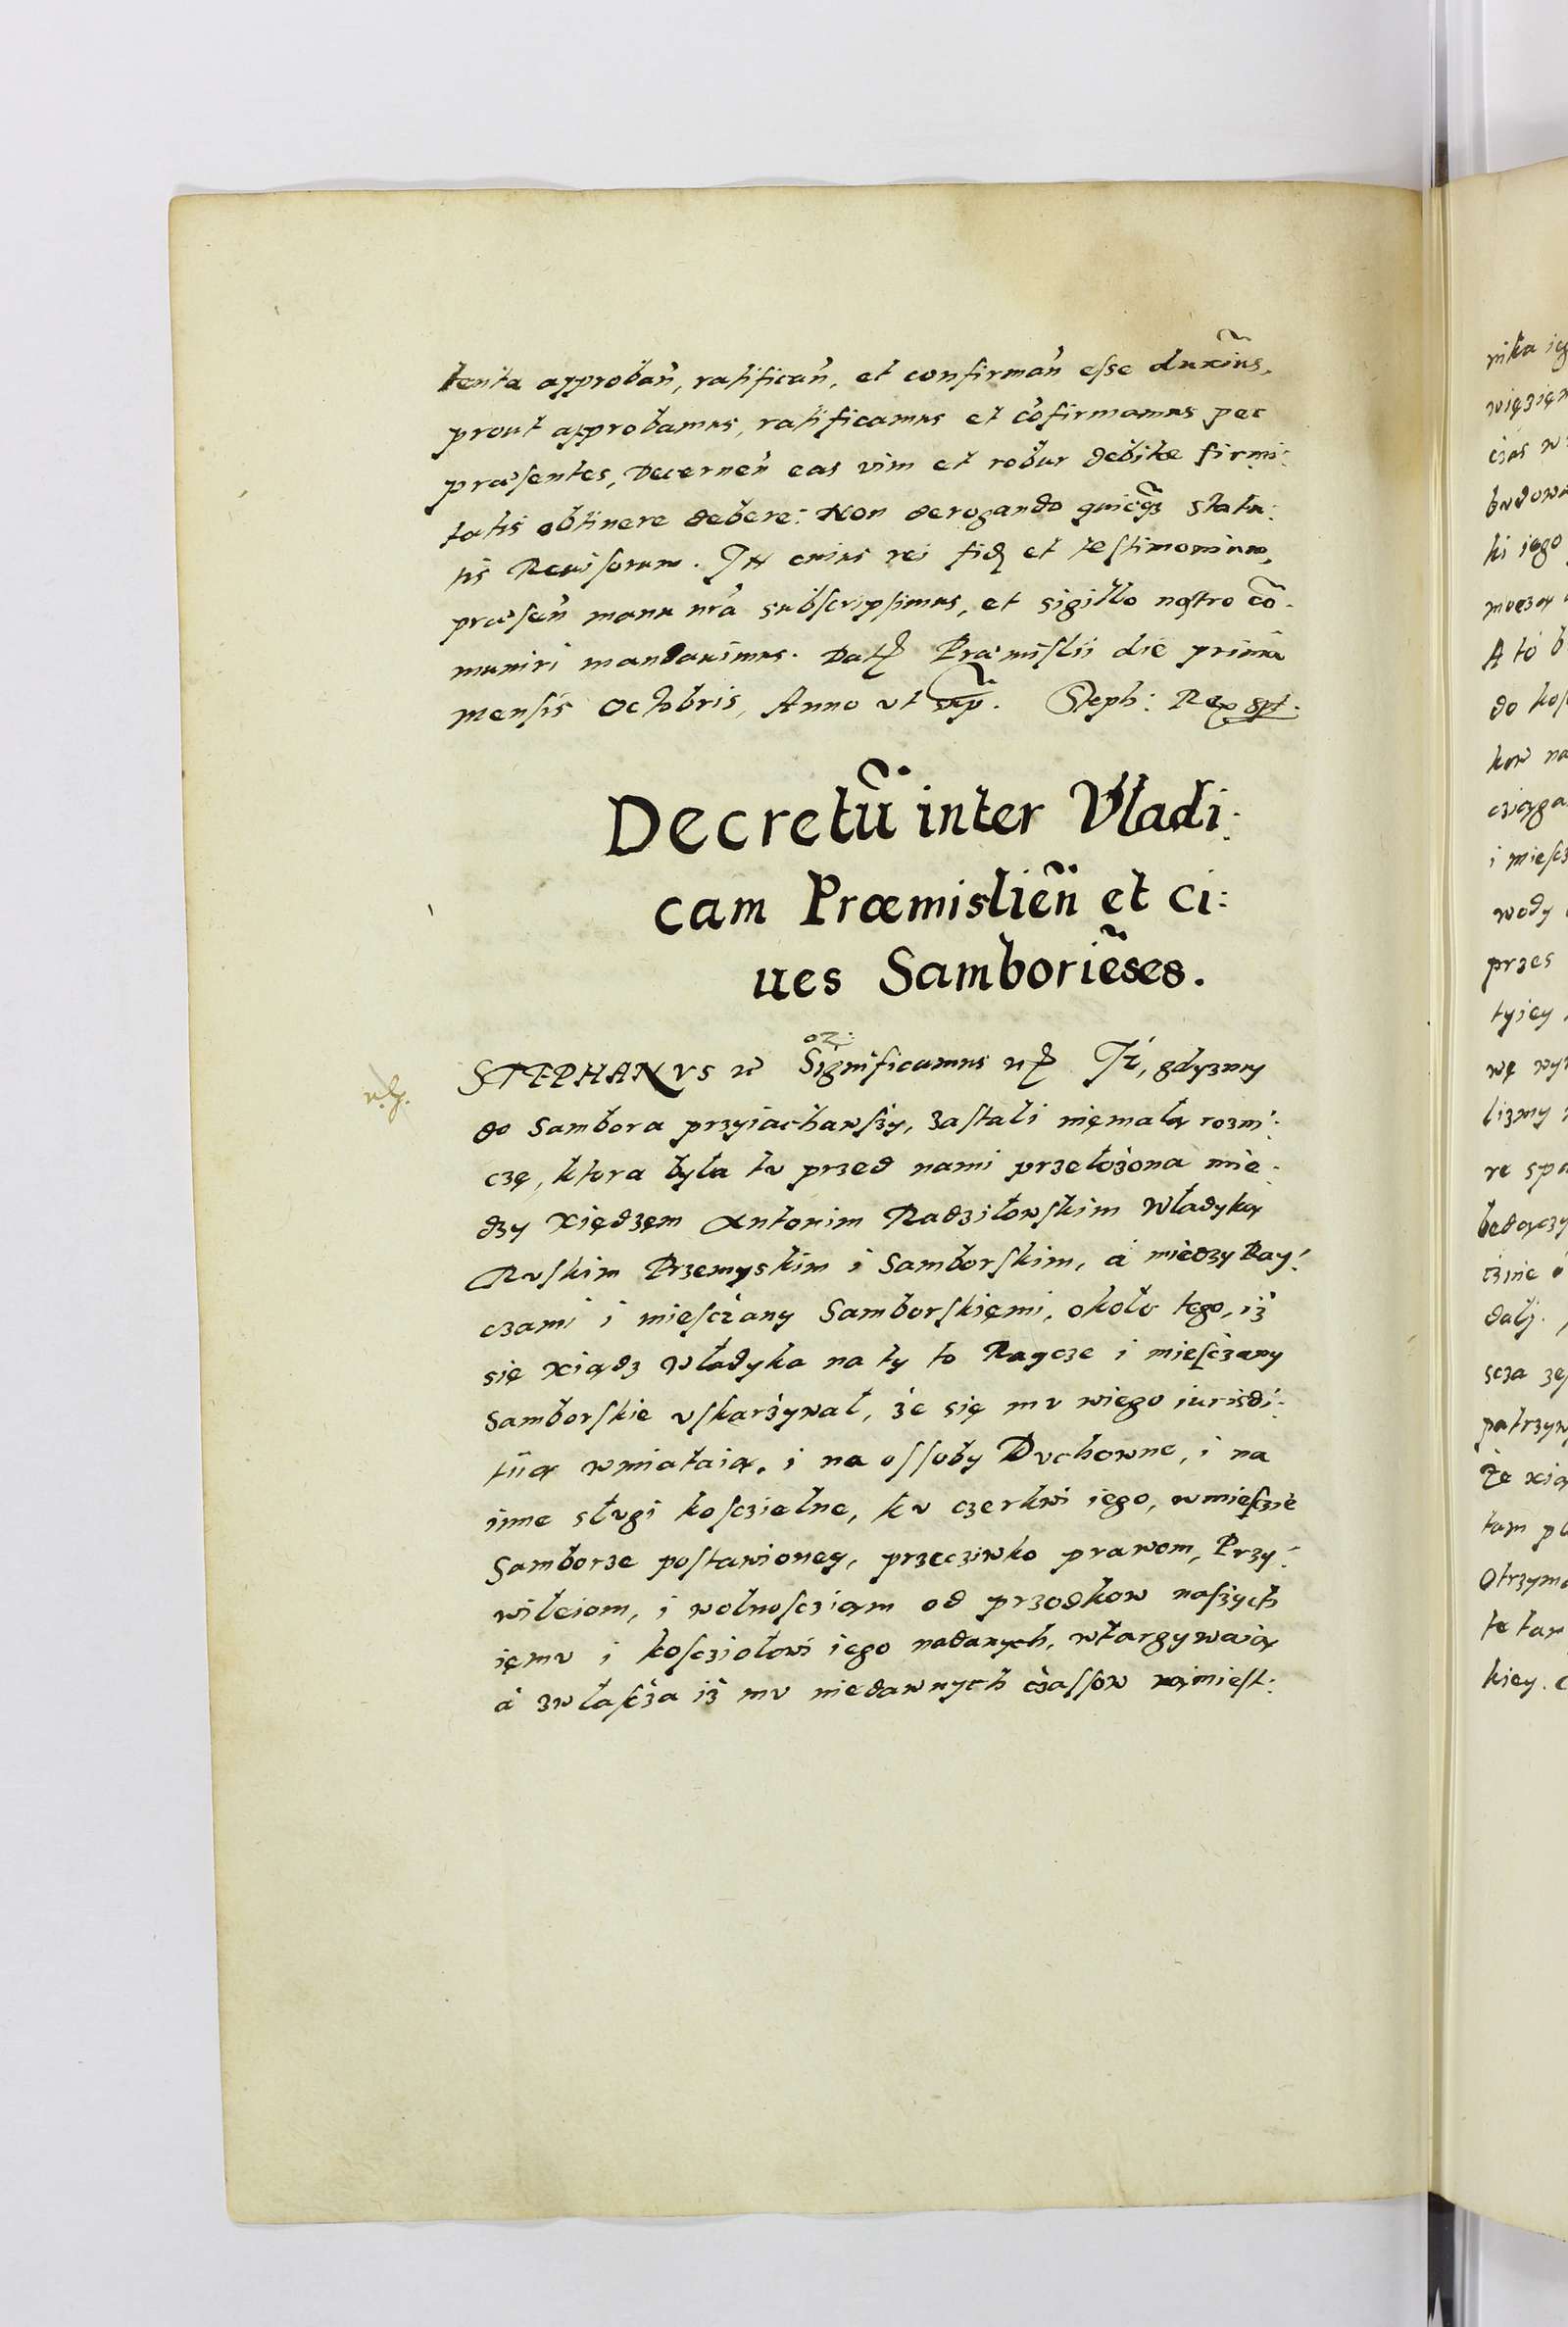 tenta approbañ, ratificañ, et confirmañ esse duxim̃us,
prout approbamus, ratificamus et cõfirmamus per
præsentes, Decerneñ eas vim et robur debitæ firmi:
tatis obtinere debere: Non derogando quicq̃ȝ statu:
tis Reuisorum. In cuius rei fidẽ et testimonium,
præseñ manu nr̃a subscripsimus, et sigillo nostro cõ:
muniri mandauimus. Datꝭ Præmislii die prima
mensis Octobris, Anno vt sup̃. Steph: Rex spt.
Decretũ inter Vladi:
cam Præmislieñ et ci:
ues Samboriẽses.
oz:
STEPHANVS Significamus Iż, gdyzmy
do Sambora przyiachawszy, zastali nięmałą rozni:
czę, ktora była tu przed nami przełożona mie:
dzy xiędzęm Antonim Radziłowskim Władyką
Ruskim Przemyskim i Samborskim, á miedzy Ray:
czami i miesczany Samborskięmi, około tego, iż
się xiądz Władyka na ty to Raycze i miesczany
Samborskie vskarżywał, że się mu wiego iurisdi:
tiią wmiataią, i na ossoby Duchowne, i na
inne sługi kosczielne, ku czerkwi iego, wmiesczie
Samborze postawioney, przeciwko prawom, Przy:
wileiom, i wolnoscziąm od przodkow naszych
ięmu i koscziołowi iego nadanych, wtargywaią
á zwłascża iż mu niedawnych czassow námiest:
nika ieg
więzięn
czas w
budowa
ki iego
A to b
do kos
kow na
i miesz
wody
przes
tyiey
wę wy
lizmy
re spa
będączy
patrzyw
Że xią
tam p
Otrzyma
te tam
kiey.